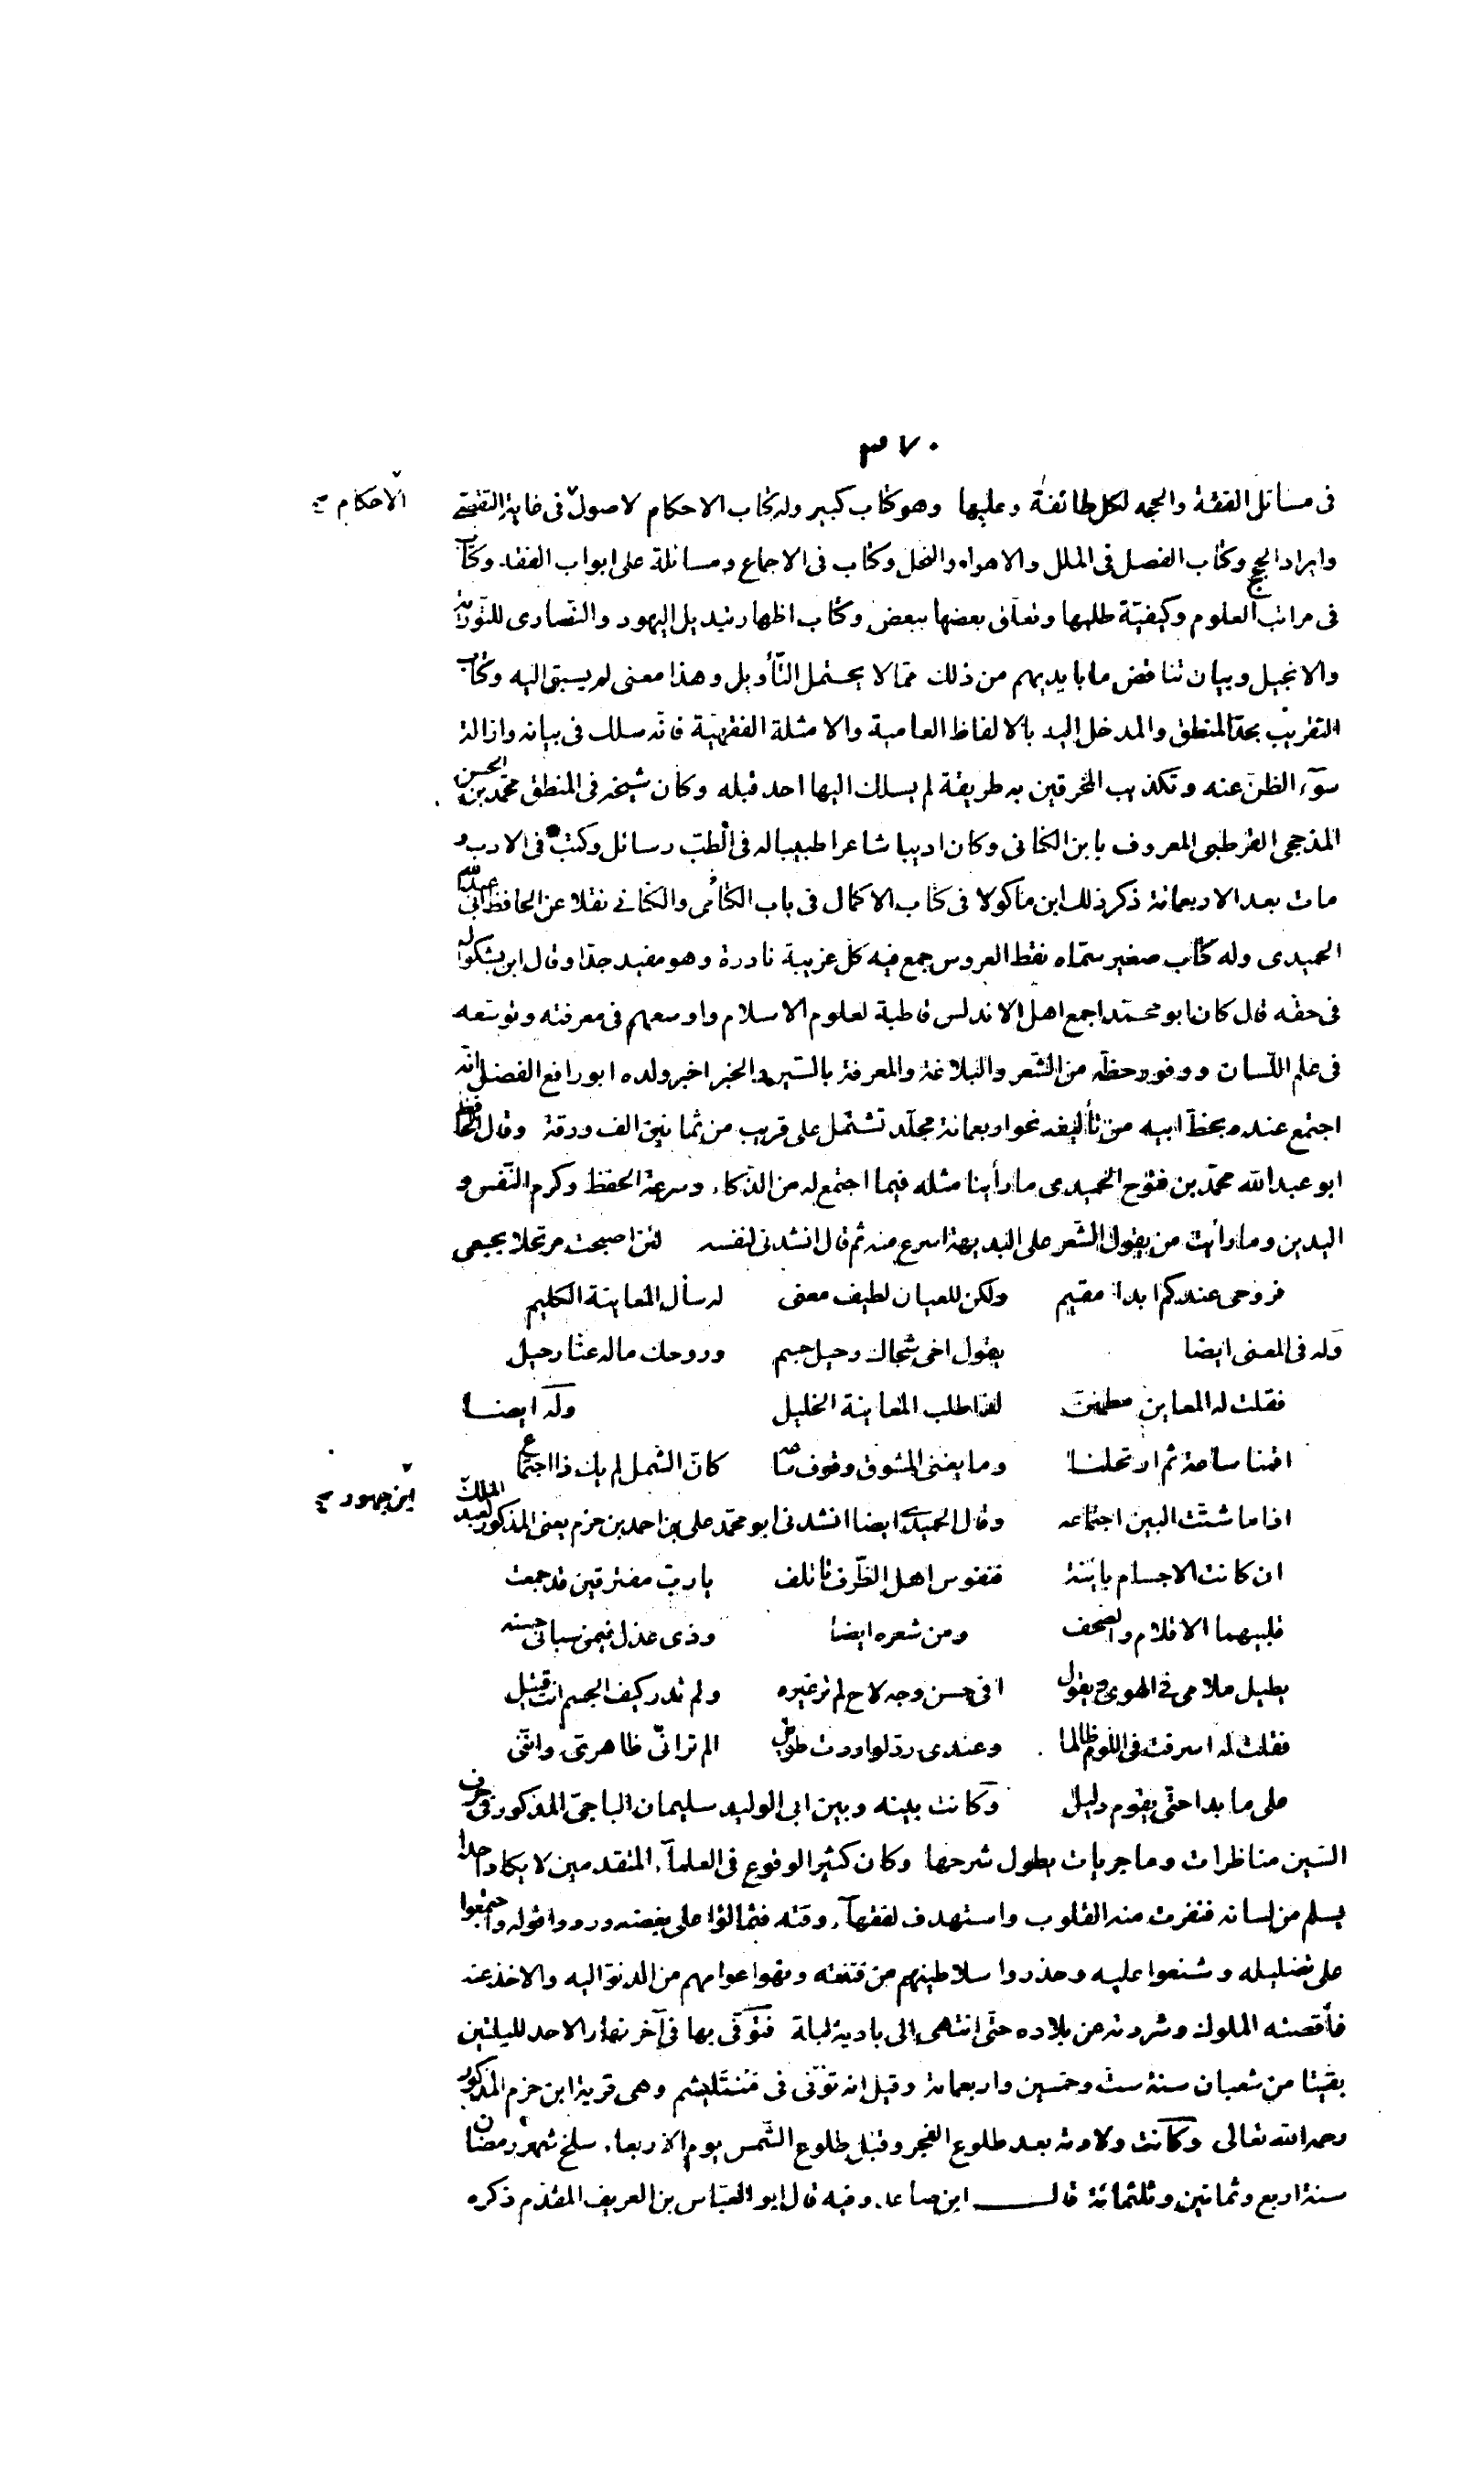 ٣٧٠
فى مسائل الفقة والحجة لكل طائفة وعليها وهو كتاب كبير وله كتاب الاحكام لاصول فى غاية التقصى
الاحكام صح
وايراد الحجج وكتاب الفصل فى الملل والاهواء والنحل وكتاب فى الاجماع ومسائلة على ابواب الفقه وكتاب
فى مراتب العلوم وكيفيّة طلبها وتعلّق بعضها ببعض وكتاب اظهار تبديل اليهود والنّصارى للتّورية
والانجيل وبيان تناقض ما بايديهم من ذلك ممّا لا يحتمل التّأويل وهذا معنى لم يسبق اليه وكتاب
التقريب بحدّ المنطق والمدخل اليه بالالفاظ العامية والامثلة الفقهيّة فانّه سلك فى بيانه وازالة
سوّء الظنّ عنه وتكذيب المخرقين به طريقة لم يسلك اليها احد قبله وكان شيخه فى المنطق محمّد بن الحسن
المذحجى القرطبى المعروف بابن الكنانى وكان اديبا شاعرا طبيبا له فى الطّب رسائل وكتب فى الادب و
مات بعد الاربعمائة ذكر ذلك ابن ماكولا فى كتاب الاكمال فى باب الكتانى والكنانے نقلا عن الحافظ ابى عبد الله
الحميدى وله كتاب صغير سمّاه نقط العروس جمع فيه كلّ غريبة نادرة وهو مفيد جدّا وقال ابن بشكوال
فى حقّه قال كان ابو محمّد اجمع اهل الاندلس قاطبة لعلوم الاسلام واوسعهم فى معرفته وتوسّعه
فى علم اللّسان ووفور حظّه من الشّعر والبلاغة والمعرفة بالسّير والخبر اخبر ولده ابو رافع الفضل انّه
اجتمع عنده بخطّ ابيه من تأليفه نحو اربعمائة مجلّد تشتمل على قريب من ثمانين الف ورقة وقال الحافظ
ابو عبد الله محمّد بن فتّوح الحميدى ما رأينا مثله فيما اجتمع له من الذّكاء وسرعة الحفظ وكرم النّفس و
اليدين وما رأيت من يقول الشّعر على البديهة اسرع منه ثم قال انشدنى لنفسه لئن اصبحت مرتحلا بجسمى
فروحى عندكم ابدا مقيم ولكن للعيان لطيف معنى له سأل المعاينة الكليم
وله فى المعنى ايضا يقول اخى شجاك رحيل جسم وروحك ماله عنّا رحيل
فقلت له المعاين مطمئن لذا طلب المعاينة الخليل وله ايضا
اقمنا ساعة ثم ارتحلنا وما يغنى المشوق وقوف ساعه كانّ الشّمل لم يك ذا اجتماع
اذا ما شتّت البين اجتماعه وقال الحميدى ايضا انشدنى ابو محمّد على بن احمد بن حزم يعنى المذكور لعبد الملك
ابن جهور صح
ان كانت الاجسام باينة فنفوس اهل الظّرف تاتلف يا ربّ مفترقين قد جمعت
قلبيهما الاقلام والصّحف ومن شعره ايضا وذى عذل فيمن سبانى حسنه
يطيل ملامى فى الهوى ويقول افى حسن وجه لاح لم تر غيره ولم تدر كيف الجسم انت قتيل
فقلت له اسرفت فى اللّوم ظالما وعندى ردّ لو اردت طويل الم تر انّى ظاهرىّ وانّنى
على ما بدا حتّى يقوم دليل وكانت بينه وبين ابى الوليد سليمان الباجىّ المذكور فى حرف
السّين مناظرات وماجريات يطول شرحها وكان كثير الوقوع فى العلمآء المتقدمين لا يكاد احد
يسلم من لسانه فنفرت منه القلوب واستهدف لفقهآء وقته فتمالؤا على بغضه وردوا قوله واجتمعوا
على تضليله وشنعوا عليه وحذروا سلاطينهم من فتنته ونهوا عوامهم من الدنوّ اليه والاخذ عنه
فأقصته الملوك وشردته عن بلاده حتّى انتهى الى بادية لبلة فتوفّى بها فى آخر نهار الاحد لليلتين
بقيتا من شعبان سنة ستّ وخمسين واربعمائة وقيل انه توفّى فى منتليشم وهى قرية ابن حزم المذكور
رحمه الله تعالى وكانت ولادته بعد طلوع الفجر وقبل طلوع الشّمس يوم الاربعاء سلخ شهر رمضان
سنة اربع وثمانين وثلثمائة قال ابن صاعد وفيه قال ابو العبّاس بن العريف المقدّم ذكره